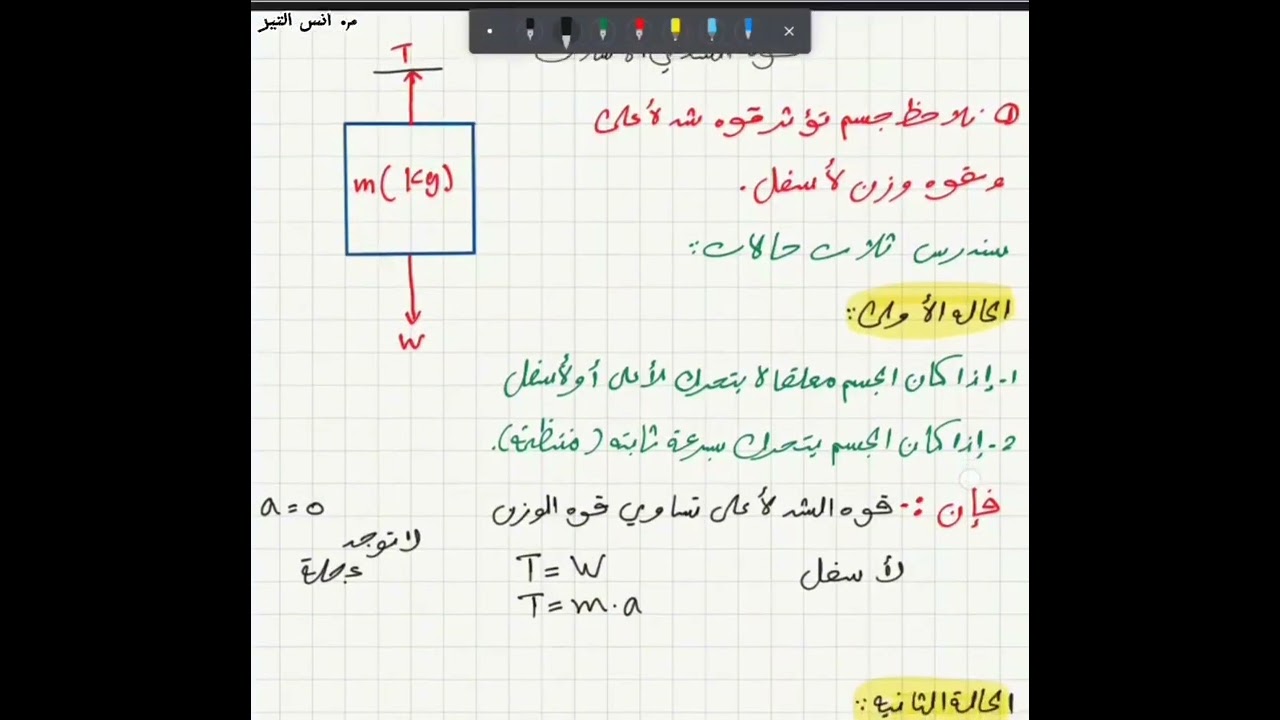 م. انس التير
T
m( kg)
W
① نلاحظ جسم تؤثر قوه شد لأعلى
وقوه وزن لأسفل.
سندرس ثلاث حالات:
الحاله الأولى:
1- إذا كان الجسم معلقا لا يتحرك لأعلى أو لأسفل
2- إذا كان الجسم يتحرك بسرعة ثابته (منتظمة).
فإن :- قوه الشد لأعلى تساوي قوه الوزن
لأسفل
T = W
T = m . a
a = 0
لا توجد
عجلة
الحالة الثانيه: